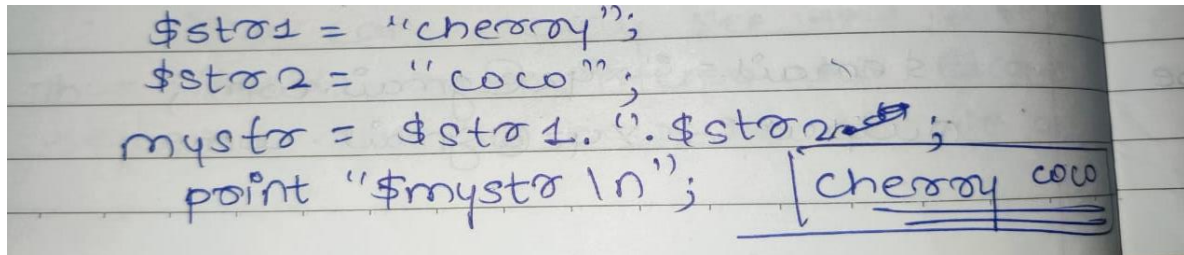 $str1 = "cherry";
$str2 = "coco";
mystr = $str1. ''. $str2 ;
print "$mystr \n"; cherry coco